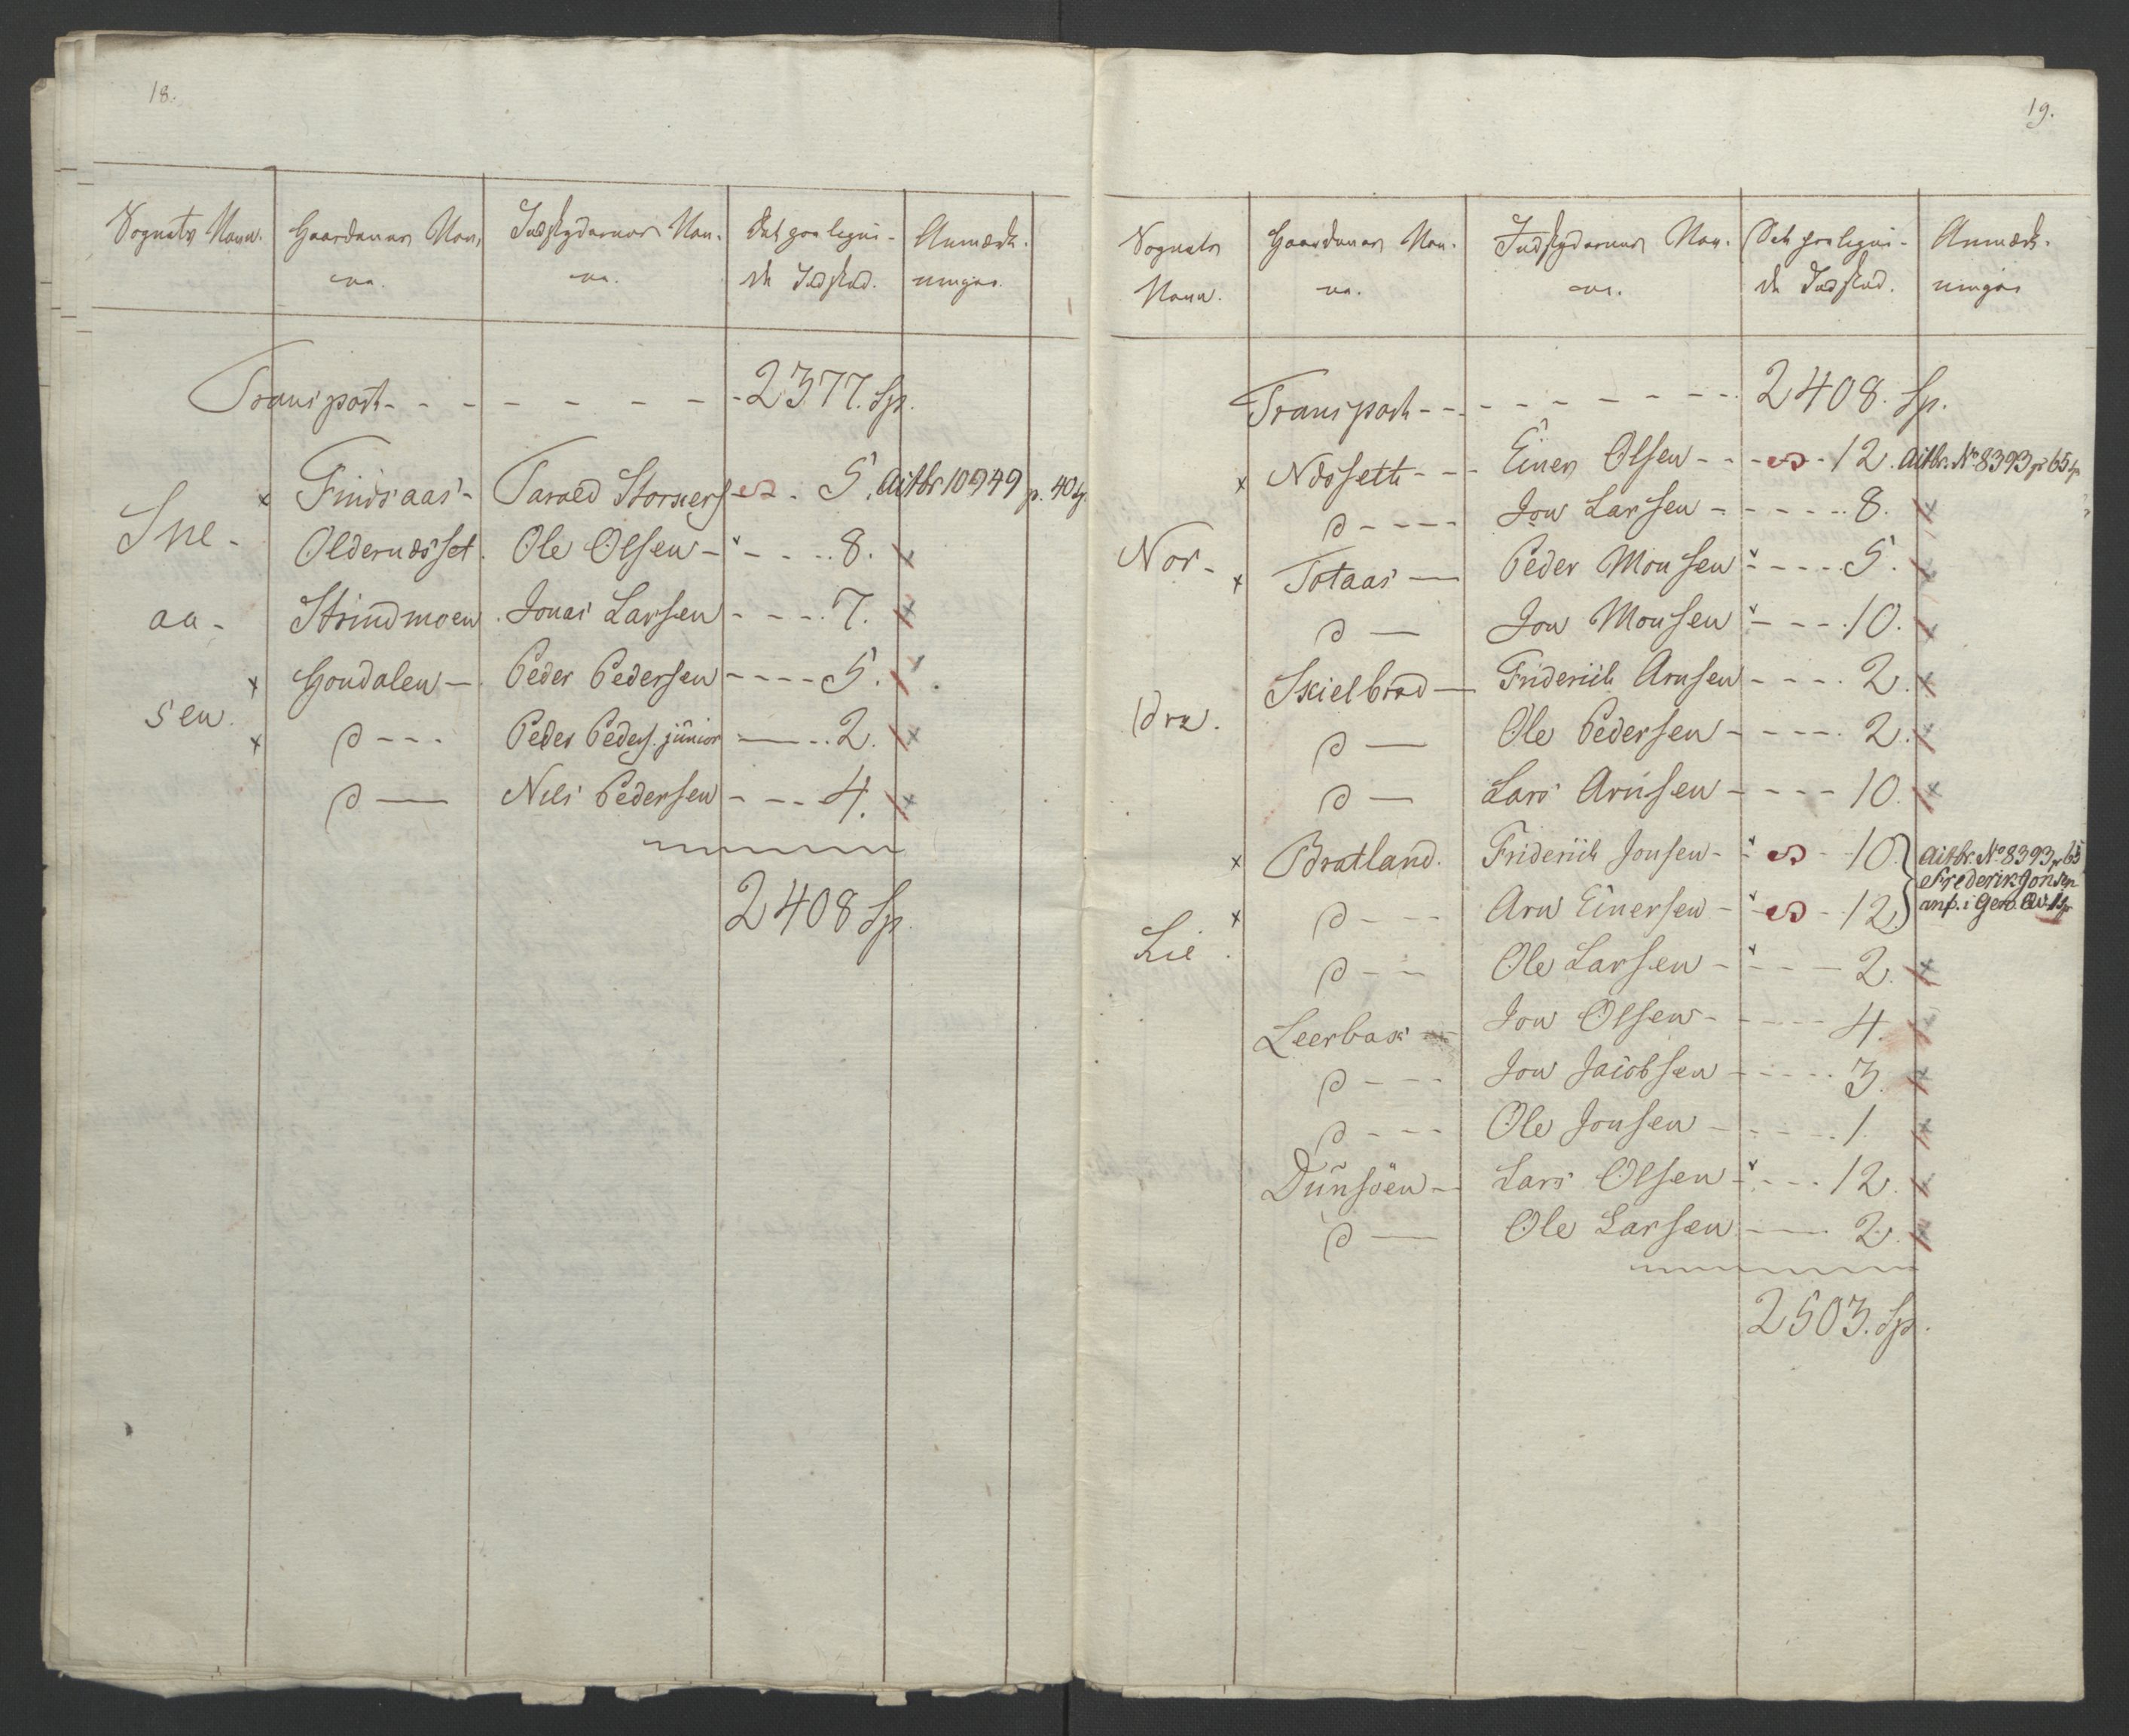 18.
Sognets Navn. Gaardenes Nav- Indskydernes Nav- Det paalegne- Anmærk-
ne. ne. de Indskud. ninger.
Transport - - - - - - - - 2377. Sp.
x Findsaas - Tarald Storkers - 5. Actbr 10949 p. 40 sp.
Sne- Oldernæsset. Ole Olsen - - - - 8.
aa- Strindmoen. Jonas Larsen - - - 7.
x Gondalen - Peder Pedersen - - - - 5.
sen. x d - - - Peder Peders. junior - . . 2.
d — Nils Pedersen - - - 4.
2408 Sp.
19.
Sognets Gaardenes Nav- Indskydernes Nav- Det paalegne- Anmærk-
Navn. ne. ne. de Indskud. ninger
Transport - - - - - - - - 2408. Sp.
x Næssett - - - Einer Olsen - - - 12. Actbr. No 8393 p 65 sp
d - - - - Jon Larsen - - - - - 8.
Nor- x Totaas — Peder Monsen - - - - 5.
d — Jon Monsen - - - - 10.
Skielbred — Friderich Arnsen - - - - 2.
dre. d — Ole Pedersen - - - - 2.
d — Lars Arnsen - - - - 10.
x Bratland. Friderich Jonsen - - 10. Actbr. No 8393 p 65
Frederik Jonsen
x d - - - Arn Einersen - - 12.
anf. i
Lie. d - - Ole Larsen - - - - 2.
Leerbak - Jon Olsen - - - - 4.
d - - - Jon Jacobsen - - - - - 3.
d - - - Ole Jonsen - - - - - 1.
Dunsöen - Lars Olsen - - - - 12.
d — Ole Larsen - - 2.
2503. Sp.